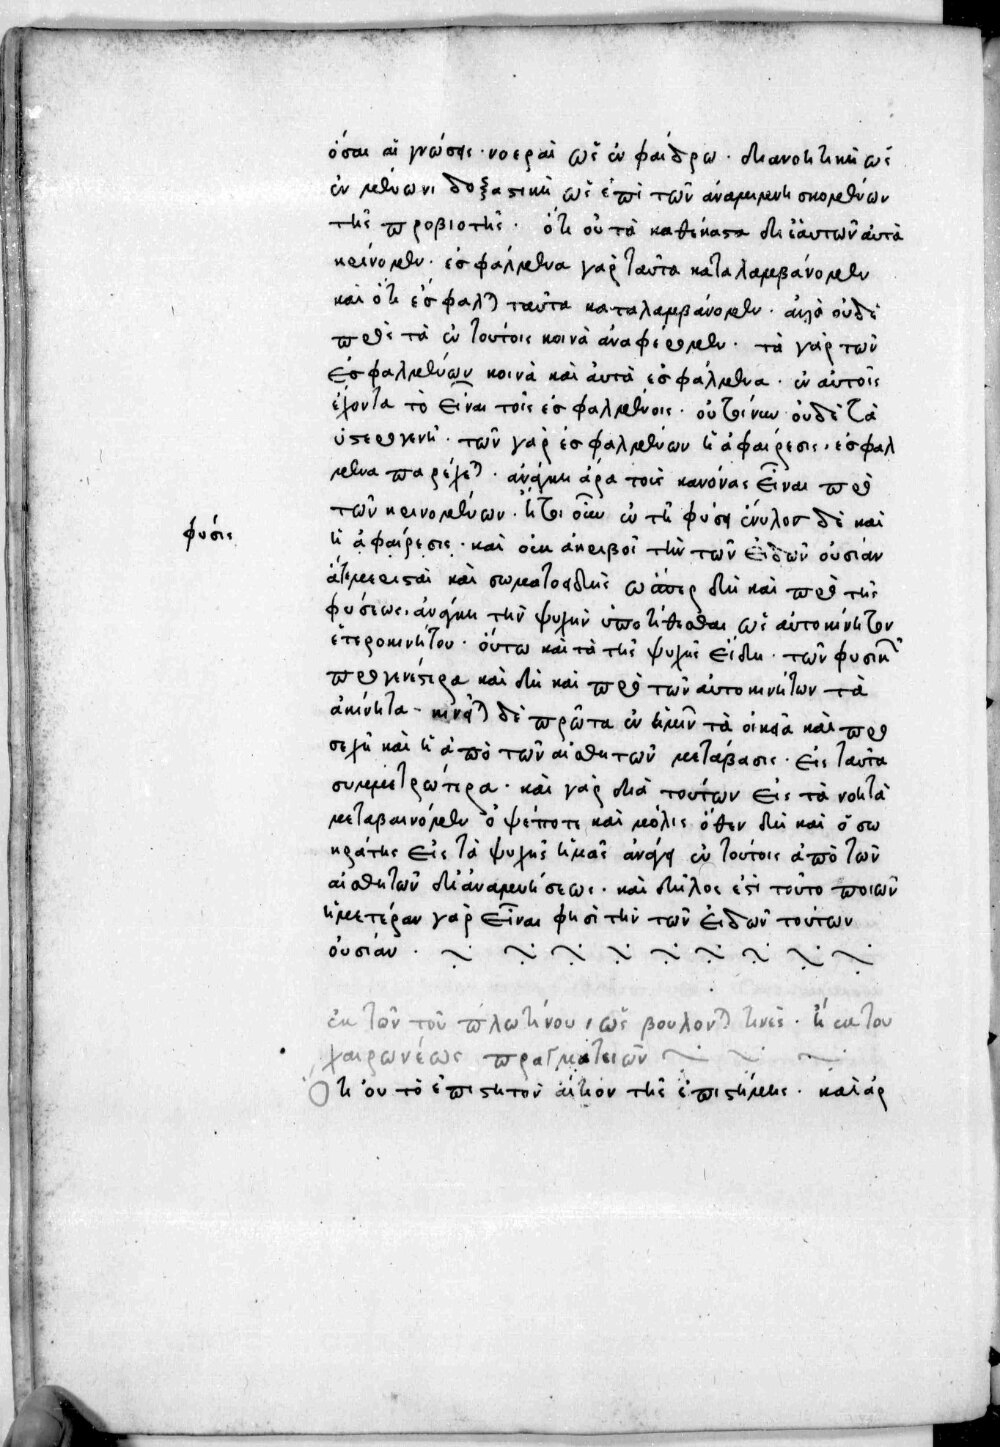 ὅσαι αἱ γνώσεις · νοεραὶ ὡς ἐν φαίδρω · διανοητικὴ ὡς
ἐν μένωνι δοξαστικὴ ὡς ἐπὶ τῶν ἀναμιμνησκομένων
τῆς προβιοτῆς · ὅτι οὐ τὰ καθέκαστα δι ἑαυτῶν αὐτὰ
κρίνομεν · ἐσφαλμένα γὰρ ταῦτα καταλαμβάνομεν
καὶ ὅτι ἐσφαλ ταῦτα καταλαμβάνομεν · ἀλλὰ οὐδὲ
πρὸς τὰ ἐν τούτοις κοινὰ ἀναφέρομεν · τὰ γὰρ τῶν
ἐσφαλμένων κοινὰ καὶ αὐτὰ ἐσφάλμενα · ἐν αὐτοῖς
ἔχοντα τὸ εἶναι τοῖς ἐσφαλμένοις · οὐ τοίνυν οὐδὲ τὰ
ὑστερογενῆ · τῶν γὰρ ἐσφαλμένων ἡ ἀφαίρεσις · ἐσφαλ
μενα παρέχε · ἀνάγκη ἄρα τοὺς κανόνας εἶναι πρὸ
τῶν κρινομένων · ἤτοι οὖν ἐν τῆ φύσει ἔνυλοι δὲ καὶ
φύσις
ἡ ἀφαίρεσις · καὶ οὐκ ἀκριβοῖ τὴν τῶν εἰδῶν οὐσίαν
ἅτε μερισταὶ καὶ σωματοειδὴς ὥσπερ δὴ καὶ πρὸ τῆς
φύσεως · ἀνάγκη τὴν ψυχὴν ὑποτίθεσθαι ὡς αὐτοκίνητον
ἑτεροκινήτου · οὕτω καὶ τὰ τῆς ψυχῆς εἴδη · τῶν φυσικ
προγενέστερα καὶ δὴ καὶ πρὸ τῶν αὐτοκινήτων τὰ
ἀκίνητα · κινεῖ δὲ πρῶτα ἐν ἡμῖν τὰ οἰκεῖα καὶ προ
σεχῆ καὶ ἡ ἀπὸ τῶν αἰσθητῶν μετάβασις · εἰς ταῦτα
συμμετρώτερα · καὶ γὰρ διὰ τούτων εἰς τὰ νοητὰ
μεταβαινόμεν ὀψέποτε καὶ μόλις ὅθεν δὴ καὶ ὁ σω
κράτης εἰς τὰ ψυχῆς ἡμᾶς ἀνάγει ἐν τούτοις ἀπὸ τῶν
αἰσθητῶν δι' ἀναμνήσεως · καὶ δῆλος ἐστὶ τοῦτο ποιῶν
ἡμετέραν γὰρ εἶναι φησὶ τὴν τῶν εἰδῶν τούτων
οὐσίαν ·
ἐκ τῶν τοῦ πλωτίνου, ὡς βούλοντ τινὲς · ἢ ἐκ του
χαιρωνέως πραγματειῶν
Ὅτι οὐ τὸ ἐπιστητὸν αἴτιον τῆς ἐπιστήμης · καὶ ἀρ